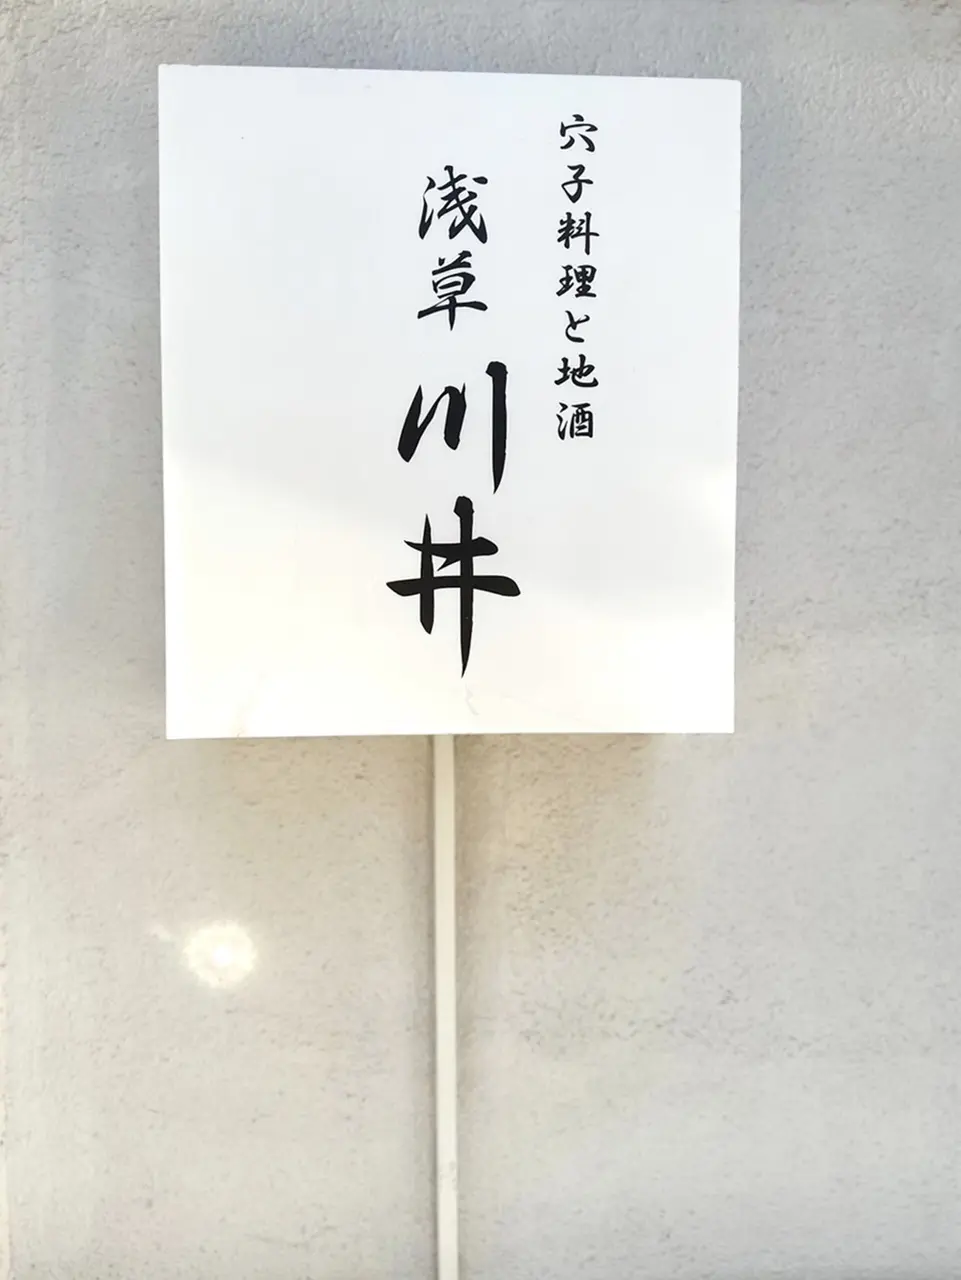 穴子料理と地酒
浅草 川井